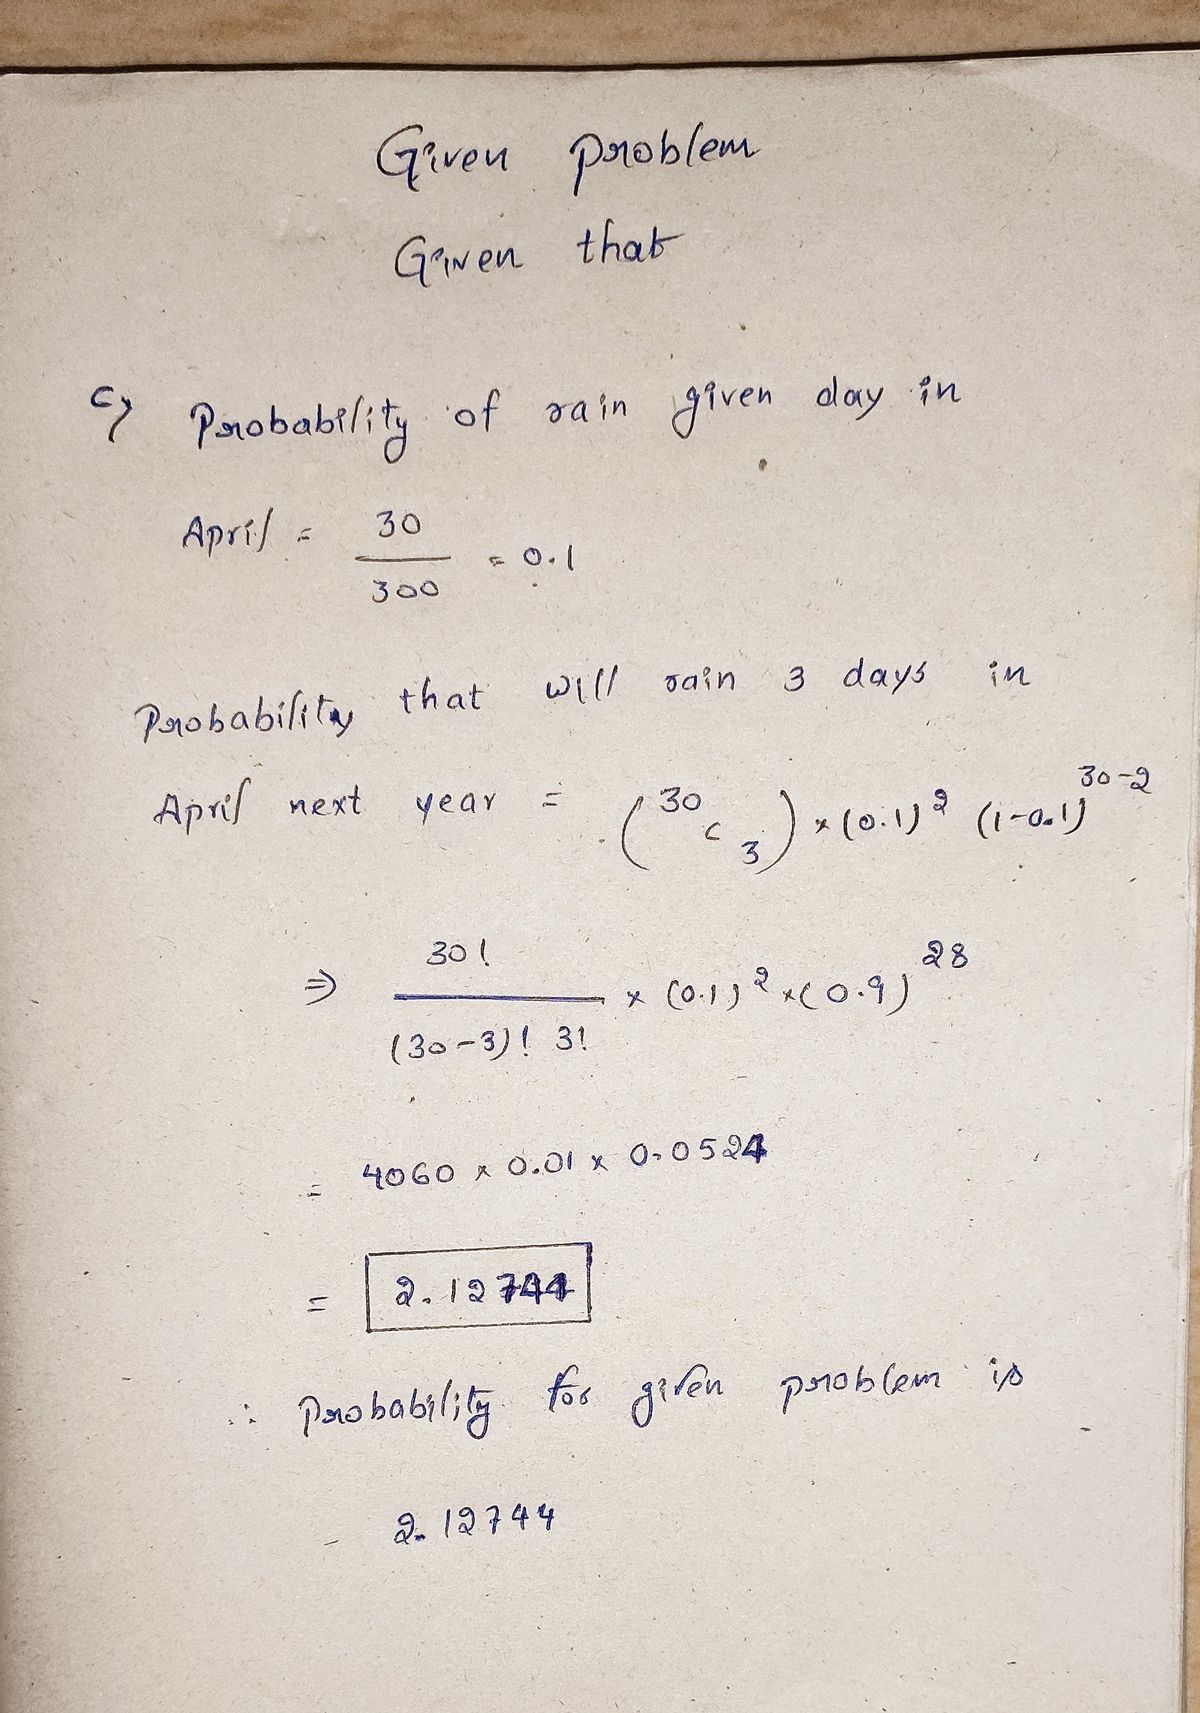 Given problem
Given that
c) Probability of rain given day in
April = 30/300 = 0.1
Probability that will rain 3 days in
April next year = (30 c 3) × (0.1)² (1-0.1)³⁰⁻²
⇒ 30!/(30-3)! 3! × (0.1)² × (0.9)²⁸
= 4060 × 0.01 × 0.0524
= 2.12744
∴ Probability for given problem is
2.12744